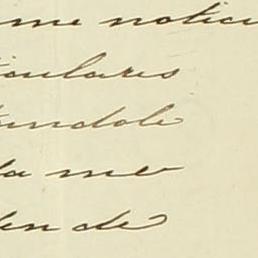 me notici
iculares
endole
la me
den de